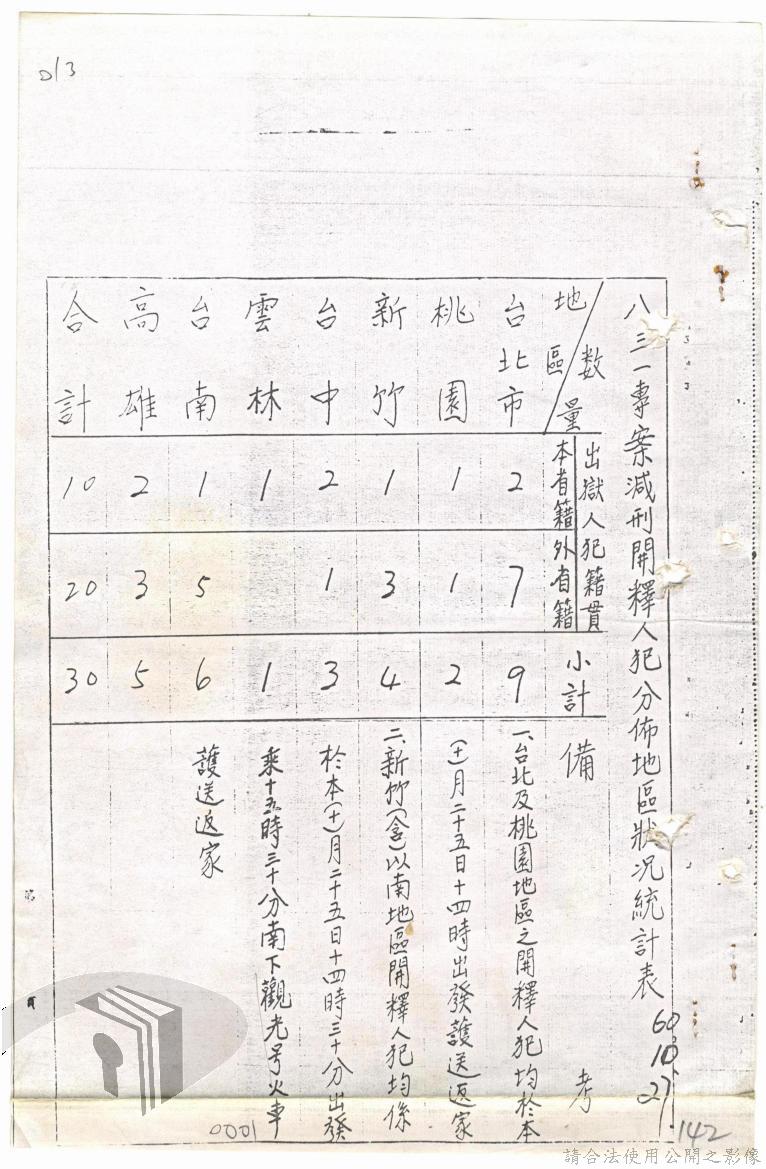 013
八三一專案減刑開釋人犯分佈地區狀况統計表
60.10.27
142
地區／數量
出獄人犯籍貫
本省籍
外省籍
小計
備考
台北市 2 7 9
桃園 1 1 2
新竹 1 3 4
台中 2 1 3
雲林 1 1
台南 1 5 6
高雄 2 3 5
合計 10 20 30
一、台北及桃園地區之開釋人犯均於本
(十)月二十五日十四時出發護送返家
二、新竹(含)以南地區開釋人犯均係
於本(十)月二十五日十四時三十分出發
乘十五時三十分南下觀光号火車
護送返家
0001
請合法使用公開之影像